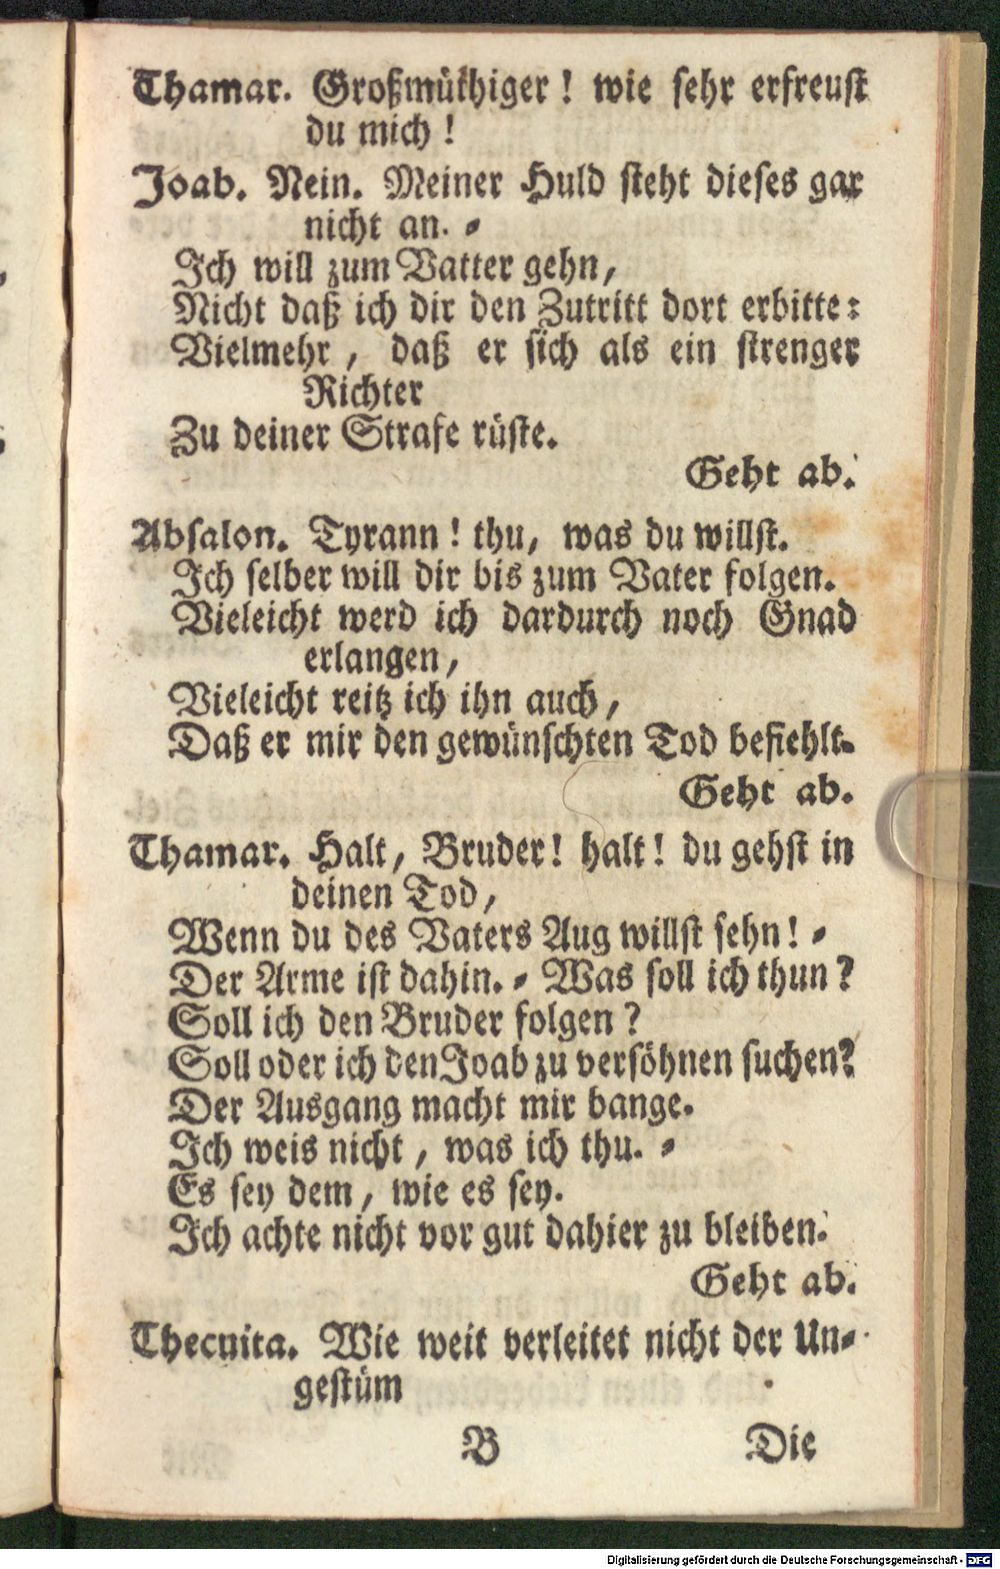 Thamar. Großmüthiger! wie sehr erfreust
du mich!
Joab. Nein. Meiner Huld steht dieses gar
nicht an. -
Ich will zum Vatter gehn,
Nicht daß ich dir den Zutritt dort erbitte:
Vielmehr, daß er sich als ein strenger
Richter
Zu deiner Strafe rüste.
Geht ab.
Absalon. Tyrann! thu, was du willst.
Ich selber will dir bis zum Vater folgen.
Vieleicht werd ich dardurch noch Gnad
erlangen,
Vieleicht reitz ich ihn auch,
Daß er mir den gewünschten Tod befiehlt.
Geht ab.
Thamar. Halt, Bruder! halt! du gehst in
deinen Tod,
Wenn du des Vaters Aug willst sehn! -
Der Arme ist dahin. - Was soll ich thun?
Soll ich den Bruder folgen?
Soll oder ich den Joab zu versöhnen suchen?
Der Ausgang macht mir bange.
Ich weis nicht, was ich thu. -
Es sey dem, wie es sey.
Ich achte nicht vor gut dahier zu bleiben.
Geht ab.
Thecuita. Wie weit verleitet nicht der Un-
gestüm
B Die
Digitalisierung gefördert durch die Deutsche Forschungsgemeinschaft - DFG